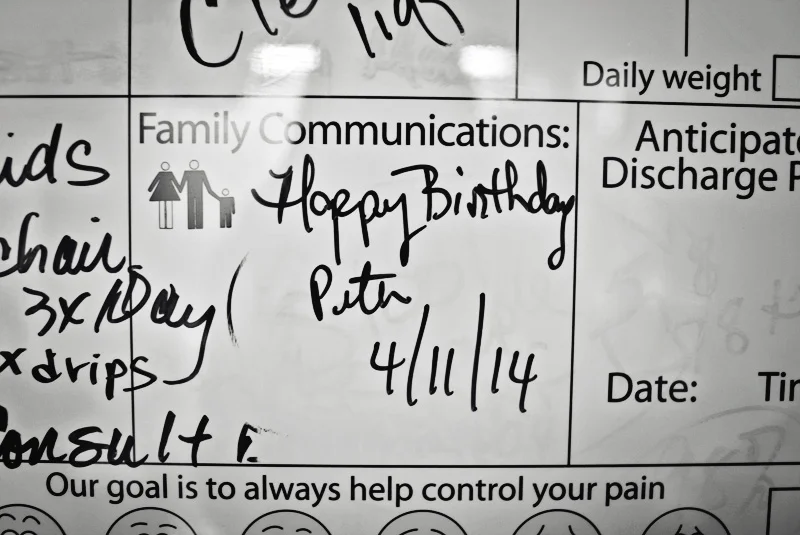 Daily weight
Family Communications:
Happy Birthday
4/11/14
ids
chair
3x/Day
x drips
Consult
Anticipate
Discharge P
Date: Tim
Our goal is to always help control your pain